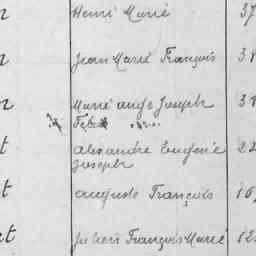 Henri Marie 37
Jean Marie François 38
Marie ange Joseph 38
t alexandre Eugene 22
Joseph
t auguste François 16
et Julien François Marie 12